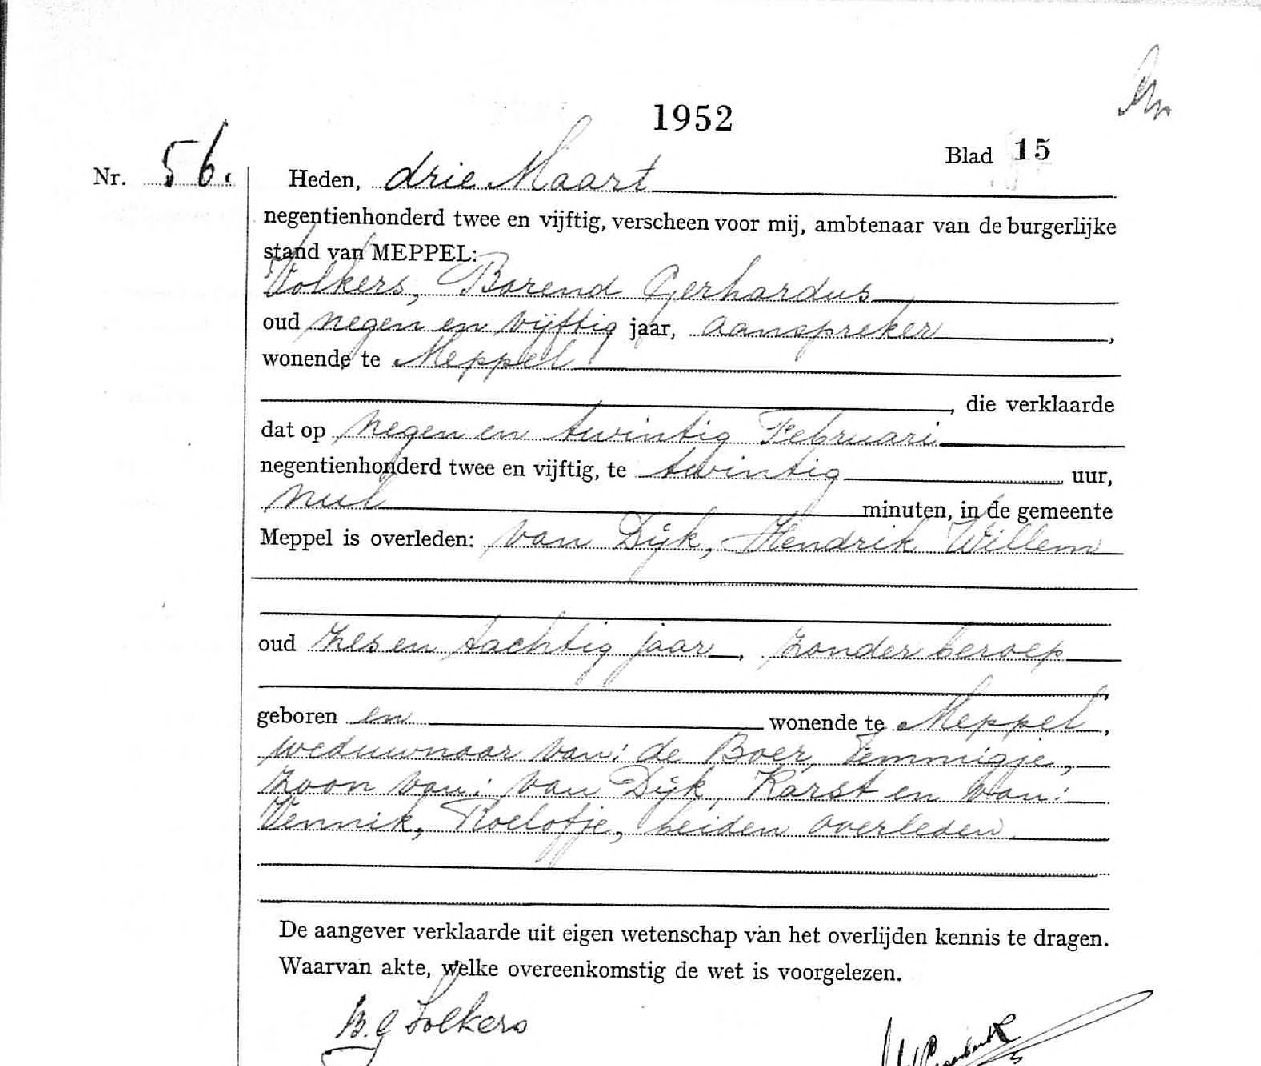 1952
Blad 15
Nr. 56. Heden, drie Maart
negentienhonderd twee en vijftig, verscheen voor mij, ambtenaar van de burgerlijke
stand van MEPPEL:
Volkers, Barend Gerhardus
oud negen en vijftig jaar, aanspreker,
wonende te Meppel
, die verklaarde
dat op negen en twintig Februari
negentienhonderd twee en vijftig, te twintig uur,
nul minuten, in de gemeente
Meppel is overleden: van Dijk, Hendrik Willem
oud zes en tachtig jaar, zonder beroep
,
geboren en wonende te Meppel,
weduwnaar van: de Boer, Temmigje,
zoon van: van Dijk, Karst en van:
Vennik, Roelofje, beiden overleden.
De aangever verklaarde uit eigen wetenschap van het overlijden kennis te dragen.
Waarvan akte, welke overeenkomstig de wet is voorgelezen.
B.G Volkers